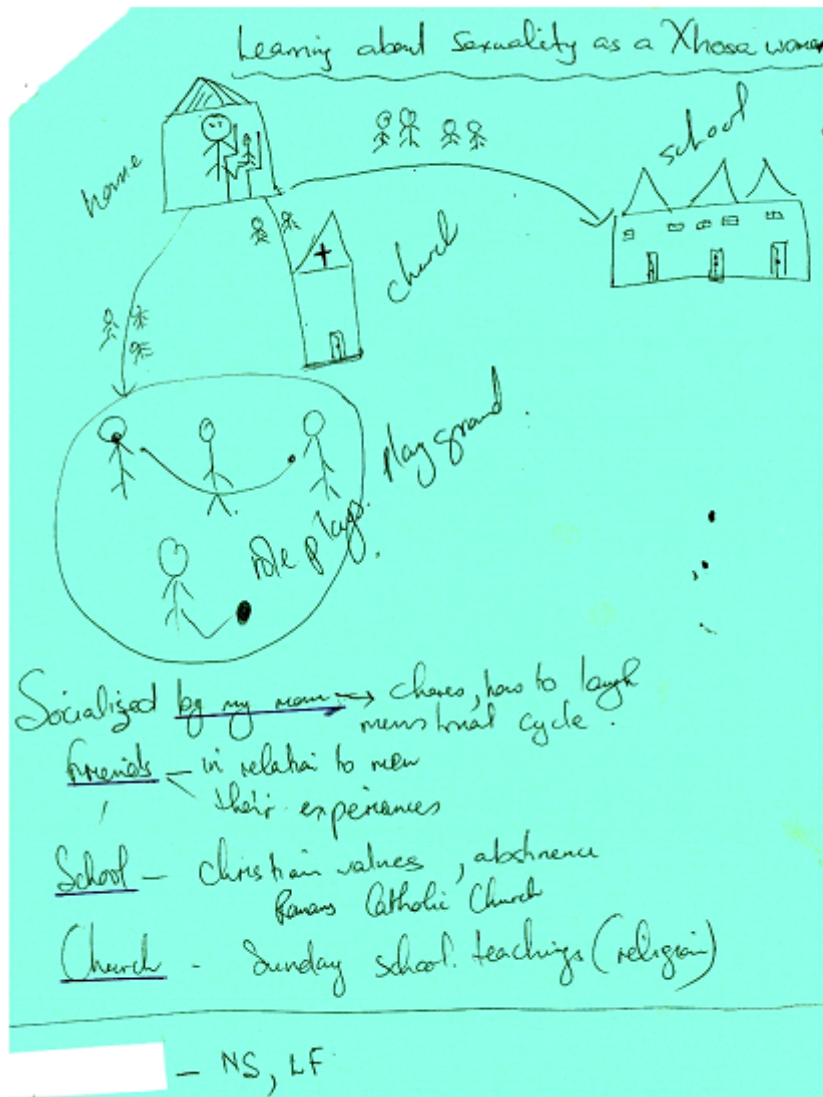 Learning about sexuality as a Xhosa woman
home
school
church
playground.
role plays.
Socialized by my mom → chores, how to laugh
menstrual cycle.
Friends – in relation to men
their experiences
School – Christian values, abstinence
Roman Catholic Church
Church - Sunday school teachings (religion)
– NS, LF